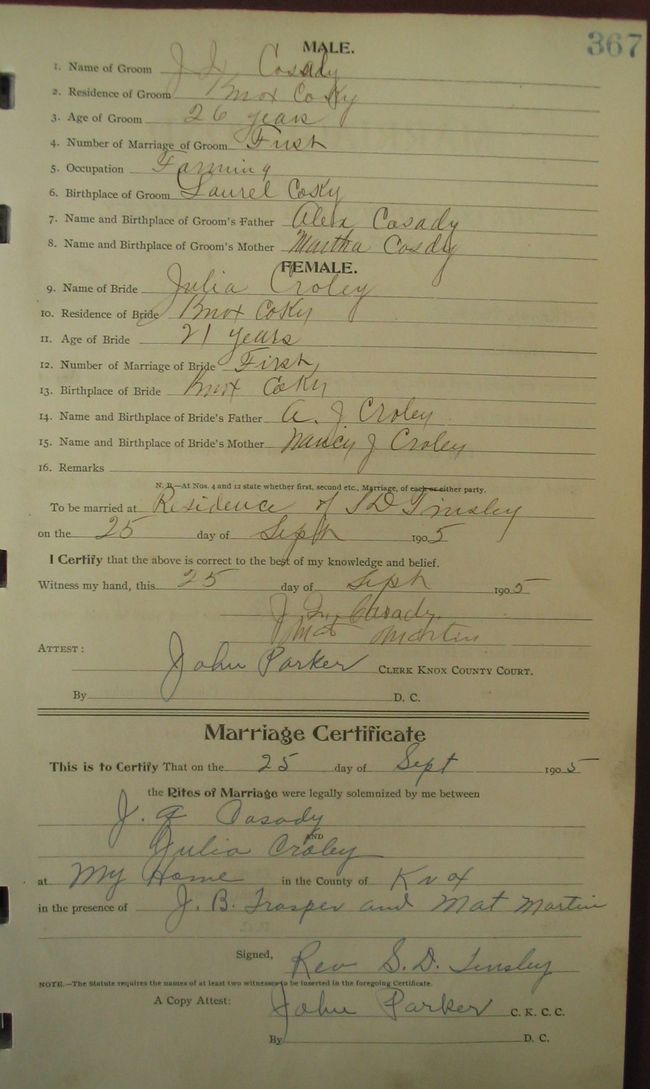 367
MALE.
1. Name of Groom J Casady
2. Residence of Groom Knox Co Ky
3. Age of Groom 26 years
4. Number of Marriage of Groom First
5. Occupation Farming
6. Birthplace of Groom Laurel Co Ky
7. Name and Birthplace of Groom's Father Alex Casady
8. Name and Birthplace of Groom's Mother Martha Casdy
FEMALE.
9. Name of Bride Julia Croley
10. Residence of Bride Knox Co Ky
11. Age of Bride 21 years
12. Number of Marriage of Bride First
13. Birthplace of Bride Knox Co Ky
14. Name and Birthplace of Bride's Father A. J Croley
15. Name and Birthplace of Bride's Mother Nancy J Croley
16. Remarks
N. B.—At Nos. 4 and 12 state whether first, second etc., Marriage, of each or either party.
To be married at Residence of S D Tinsley
on the 25 day of Sept 1905
I Certify that the above is correct to the best of my knowledge and belief.
Witness my hand, this 25 day of Sept 1905
J Casady
Mat Martin
ATTEST:
John Parker CLERK KNOX COUNTY COURT.
By D. C.
Marriage Certificate
This is to Certify That on the 25 day of Sept 1905
the Rites of Marriage were legally solemnized by me between
J. Casady
AND
Julia Croley
at My Home in the County of Knox
in the presence of J. B. Trosper and Mat Martin
Signed, Rev S. D. Tinsley
NOTE.—The Statute requires the names of at least two witnesses to be inserted in the foregoing Certificate.
A Copy Attest: John Parker C. K. C. C.
By D. C.